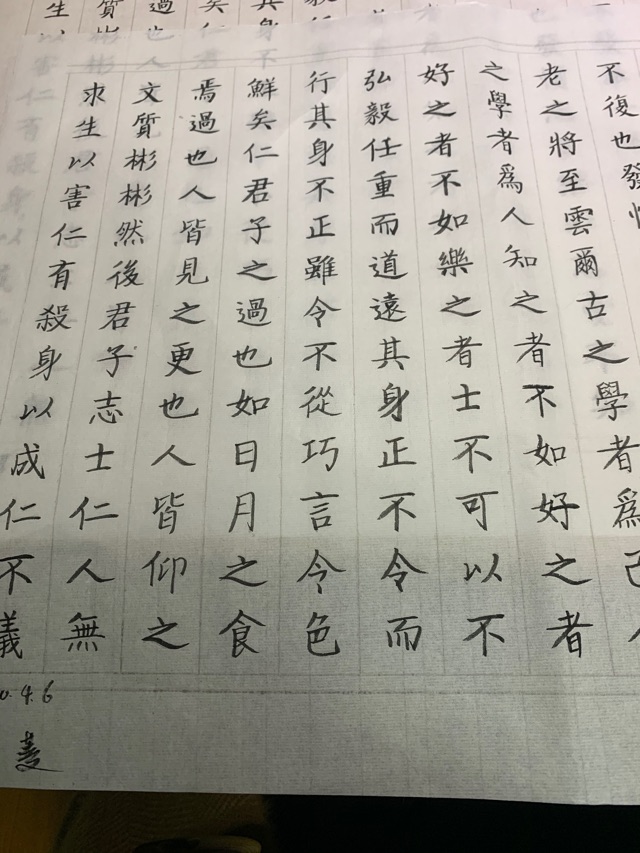 不復也發
老之將至雲爾古之學者爲己
之學者爲人知之者不如好之者
好之者不如樂之者士不可以不
弘毅任重而道遠其身正不令而
行其身不正雖令不從巧言令色
鮮矣仁君子之過也如日月之食
焉過也人皆見之更也人皆仰之
文質彬彬然後君子志士仁人無
求生以害仁有殺身以成仁不義
.4.6